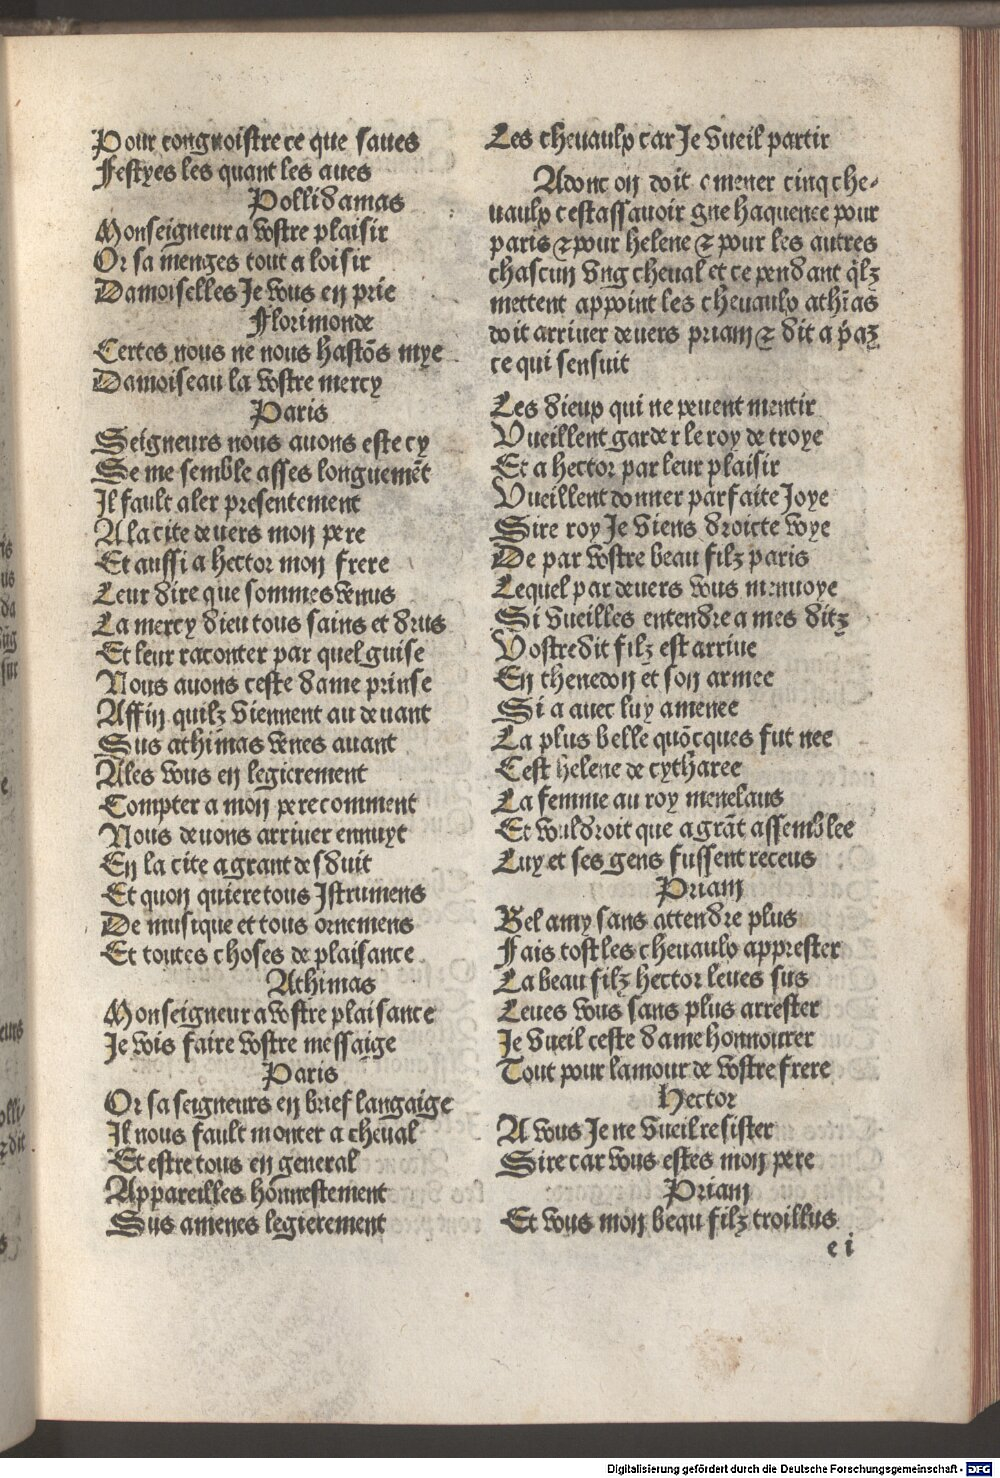 Pour congnoistre ce que saues
Festyes les quant les aues
Pollidamas
Monseigneur a vostre plaisir
Or sa menges tout a loisir
Damoiselles Je vous en prie
Florimonde
Certes nous ne nous hastõs mye
Damoiseau la vostre mercy
Paris
Seigneurs nous auons este cy
Se me semble asses longuemẽt
Il fault aler presentement
A la cite deuers mon pere
Et aussi a hector mon frere
Leur dire que sommes venus
La mercy dieu tous sains et drus
Et leur raconter par quel guise
Nous auons ceste dame prinse
Affin quilz viennent au deuant
Sus athimas venes auant
Ales vous en legierement
Compter a mon pere comment
Nous deuons arriuer ennuyt
En la cite a grant desduit
Et quon quiere tous Jstrumens
De musique et tous ornemens
Et toutes choses de plaisance
Athimas
Monseigneur a vostre plaisance
Je vois faire vostre messaige
Paris
Or sa seigneurs en brief langaige
Il nous fault monter a cheual
Et estre tous en general
Appareilles honnestement
Sus amenes legierement
Les cheuaulx car Je vueil partir
Adonc on doit emener cinq che-
uaulx cestassauoir gne haquenee pour
paris ⁊ pour helene ⁊ pour les autres
chascun vng cheual et ce pendant q̃lz
mettent appoint les cheuaulx athĩas
doit arriuer deuers priam ⁊ dit a
ce qui sensuit
Les dieux qui ne peuent mentir
Vueillent garder le roy de troye
Et a hector par leur plaisir
Vueillent donner parfaite Joye
Sire roy Je viens droicte voye
De par vostre beau filz paris
Lequel par deuers vous menuoye
Si vueilles entendre a mes ditz
Vostredit filz est arriue
En thenedon et son armee
Si a auec luy amenee
La plus belle quõcques fut nee
Cest helene de cytharee
La femme au roy menelaus
Et vouldroit que a grãt assemblee
Luy et ses gens fussent receus
Priam
Bel amy sans attendre plus
Fais tost les cheuaulx apprester
La beau filz hector leues sus
Leues vous sans plus arrester
Je vueil ceste dame honnourer
Tout pour lamour de vostre frere
Hector
A vous Je ne vueil resister
Sire car vous estes mon pere
Priam
Et vous mon beau filz troillus
e i
Digitalisierung gefördert durch die Deutsche Forschungsgemeinschaft - DFG